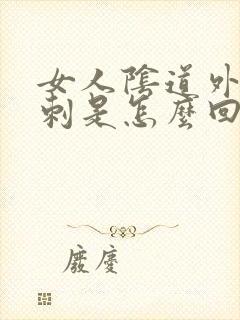 女人陰道外
刺是怎麼回
廢慶